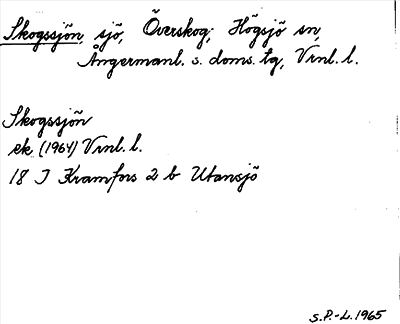 Skogssjön, sjö, Överskog, Högsjö sn,
Ångermanl. s. doms. tg, Vrnl. l.
Skogssjön
ek. (1964) Vrnl. l.
18 J Kramfors 2 b Utansjö
S.P.-L. 1965